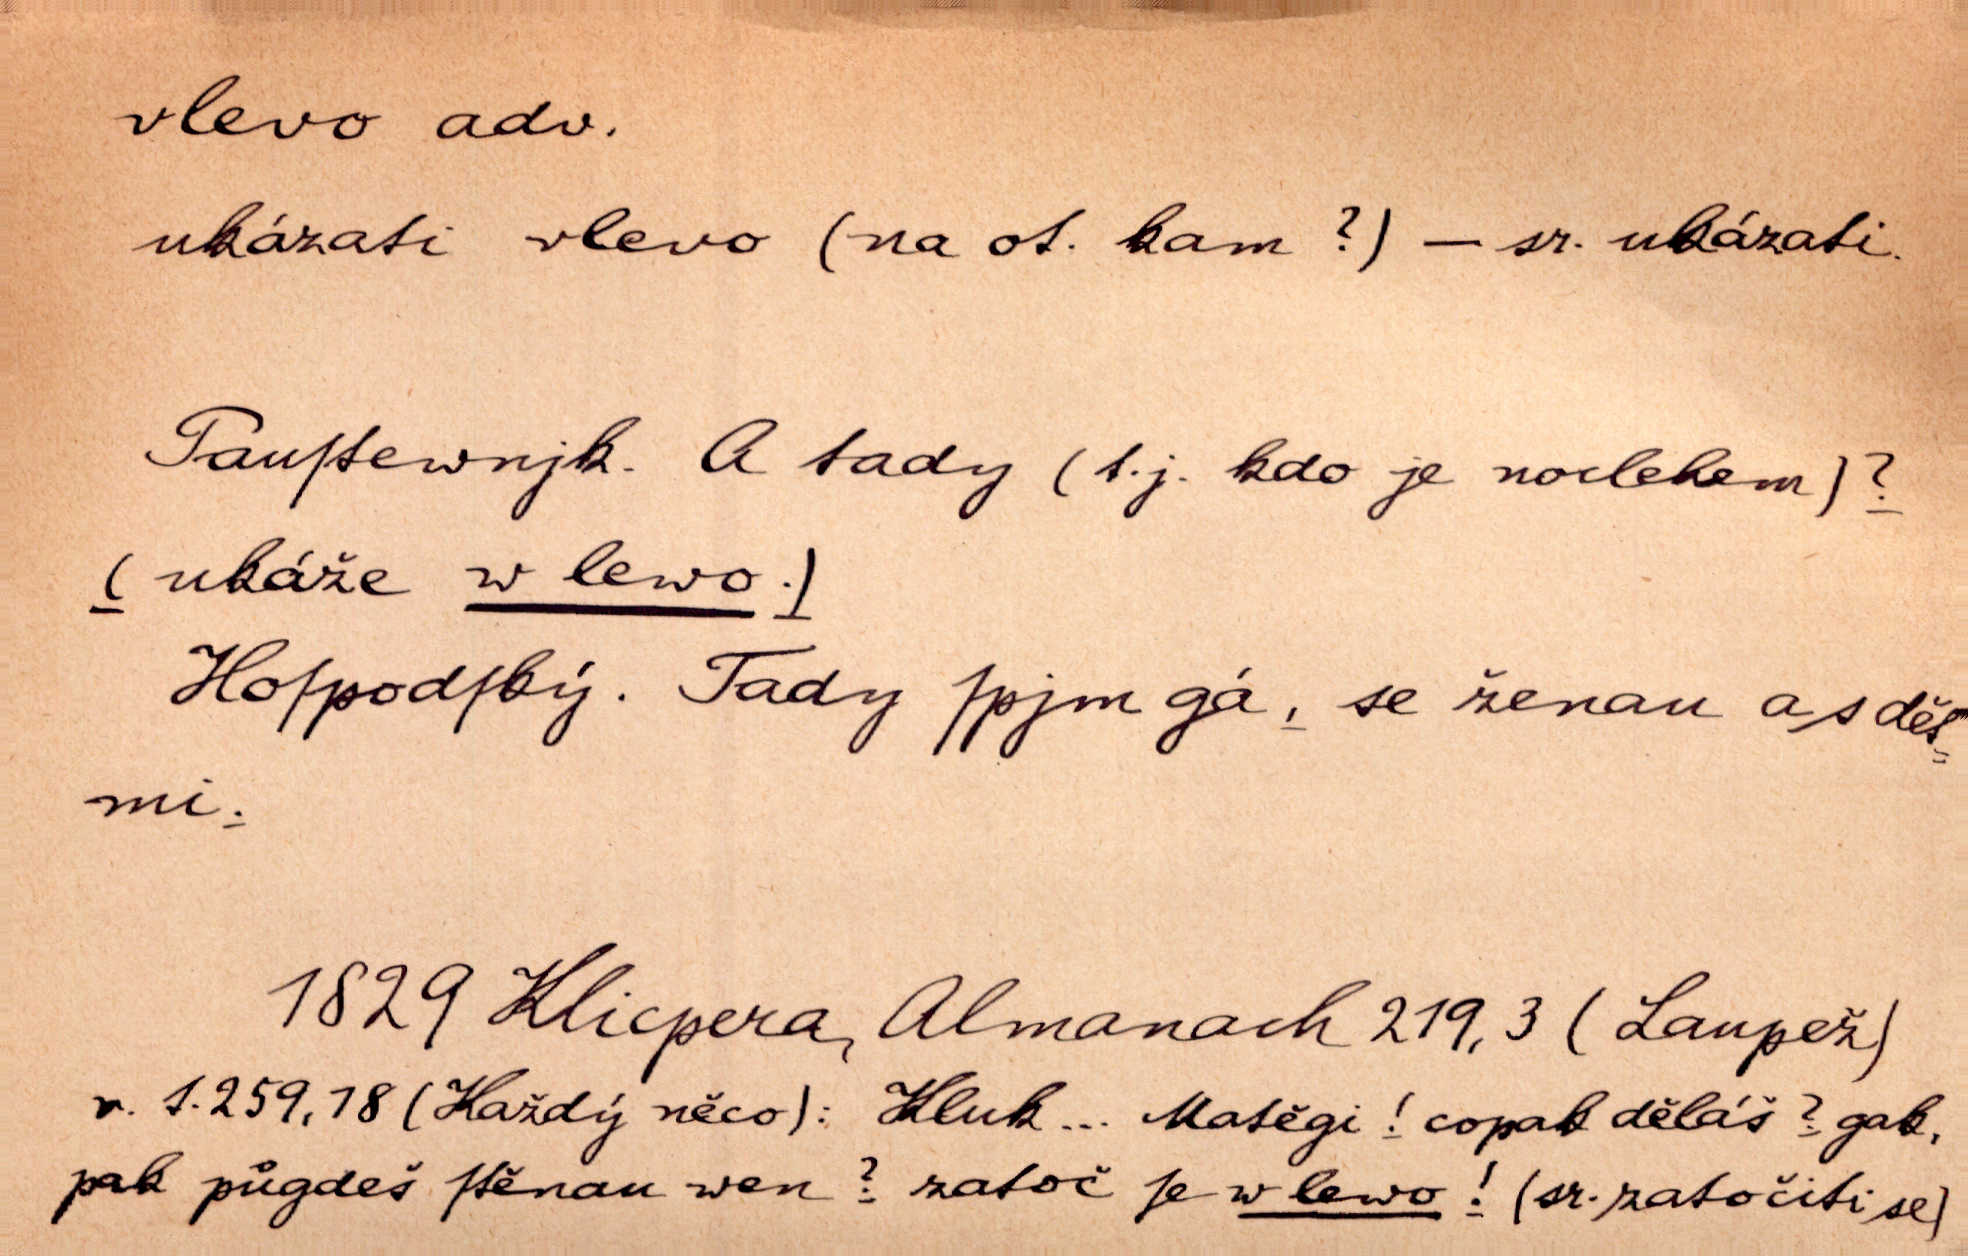 vlevo adv.
ukázati vlevo (na ot. kam ?) — sr. ukázati.
Pauſtewnjk. A tady (t.j. kdo je noclehem) ?
( ukáže w lewo .)
Hoſpodſký. Tady ſpjm gá, se ženau a s dět-
mi.
1829 Klicpera, Almanach 219,3 (Laupež)
v. t. 259,18 (Každý něco): Kluk... Matěgi ! copak děláš ? gak,
pak půgdeš ſtěnau wen ? zatoč ſe w lewo ! (sr. zatočiti se)